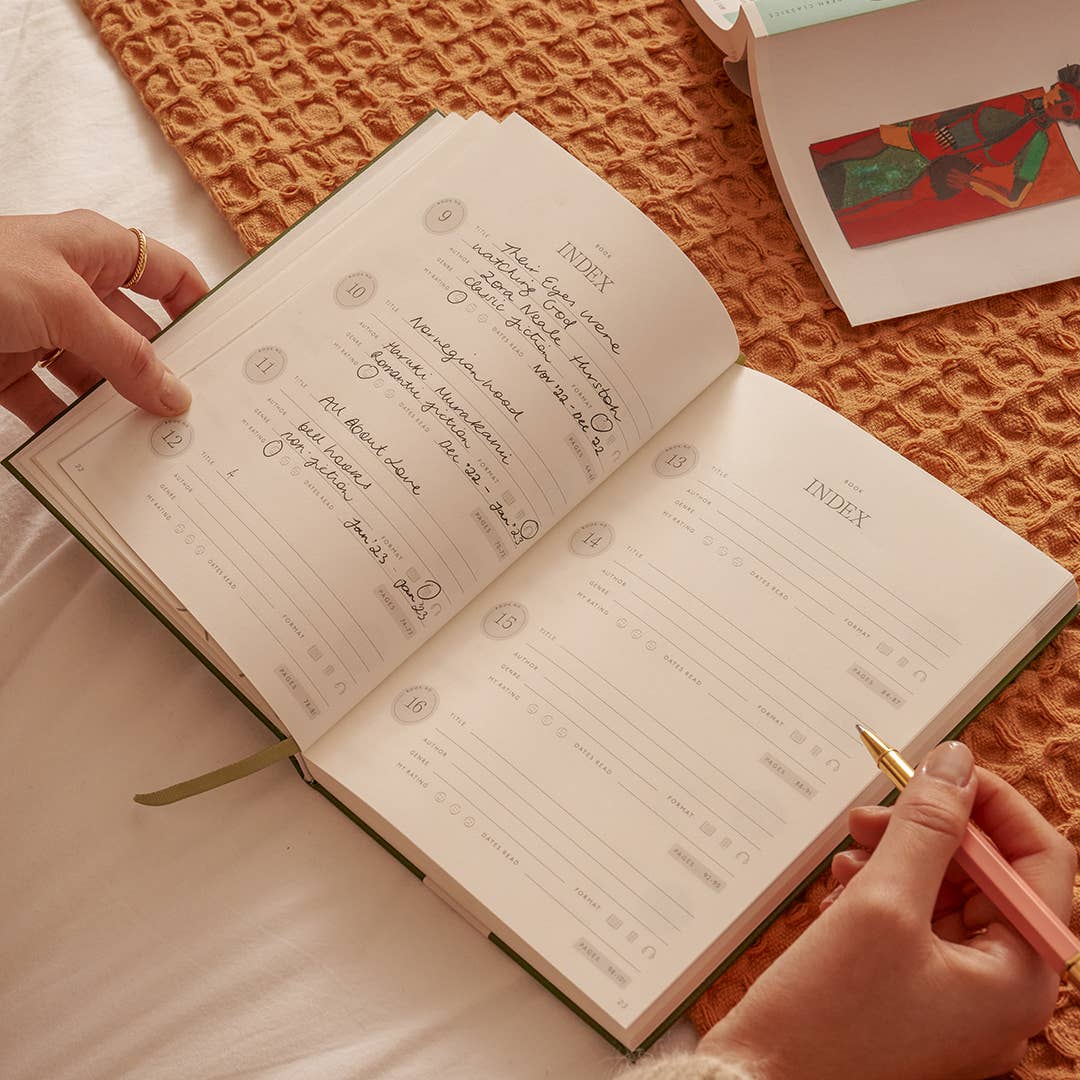 BOOK
INDEX
BOOK NO
9
TITLE Their Eyes were
watching God
AUTHOR Zora Neale Hurston
GENRE classic fiction
MY RATING DATES READ Nov '22 - Dec '22
FORMAT
BOOK NO
10
TITLE Norwegian Wood
AUTHOR Haruki Murakami
GENRE Romantic fiction
MY RATING DATES READ Dec '22 - Jan '23
FORMAT
PAGES 70-73
BOOK NO
11
TITLE All About Love
AUTHOR bell hooks
GENRE non-fiction
MY RATING DATES READ Jan '23 - Jan '23
FORMAT
PAGES 74-77
BOOK NO
12
TITLE A
AUTHOR
GENRE
MY RATING DATES READ
FORMAT
PAGES 78-81
22
BOOK
INDEX
BOOK NO
13
TITLE
AUTHOR
GENRE
MY RATING DATES READ
FORMAT
PAGES 84-87
BOOK NO
14
TITLE
AUTHOR
GENRE
MY RATING DATES READ
FORMAT
PAGES 88-91
BOOK NO
15
TITLE
AUTHOR
GENRE
MY RATING DATES READ
FORMAT
PAGES 92-95
BOOK NO
16
TITLE
AUTHOR
GENRE
MY RATING DATES READ
FORMAT
PAGES 98-101
23